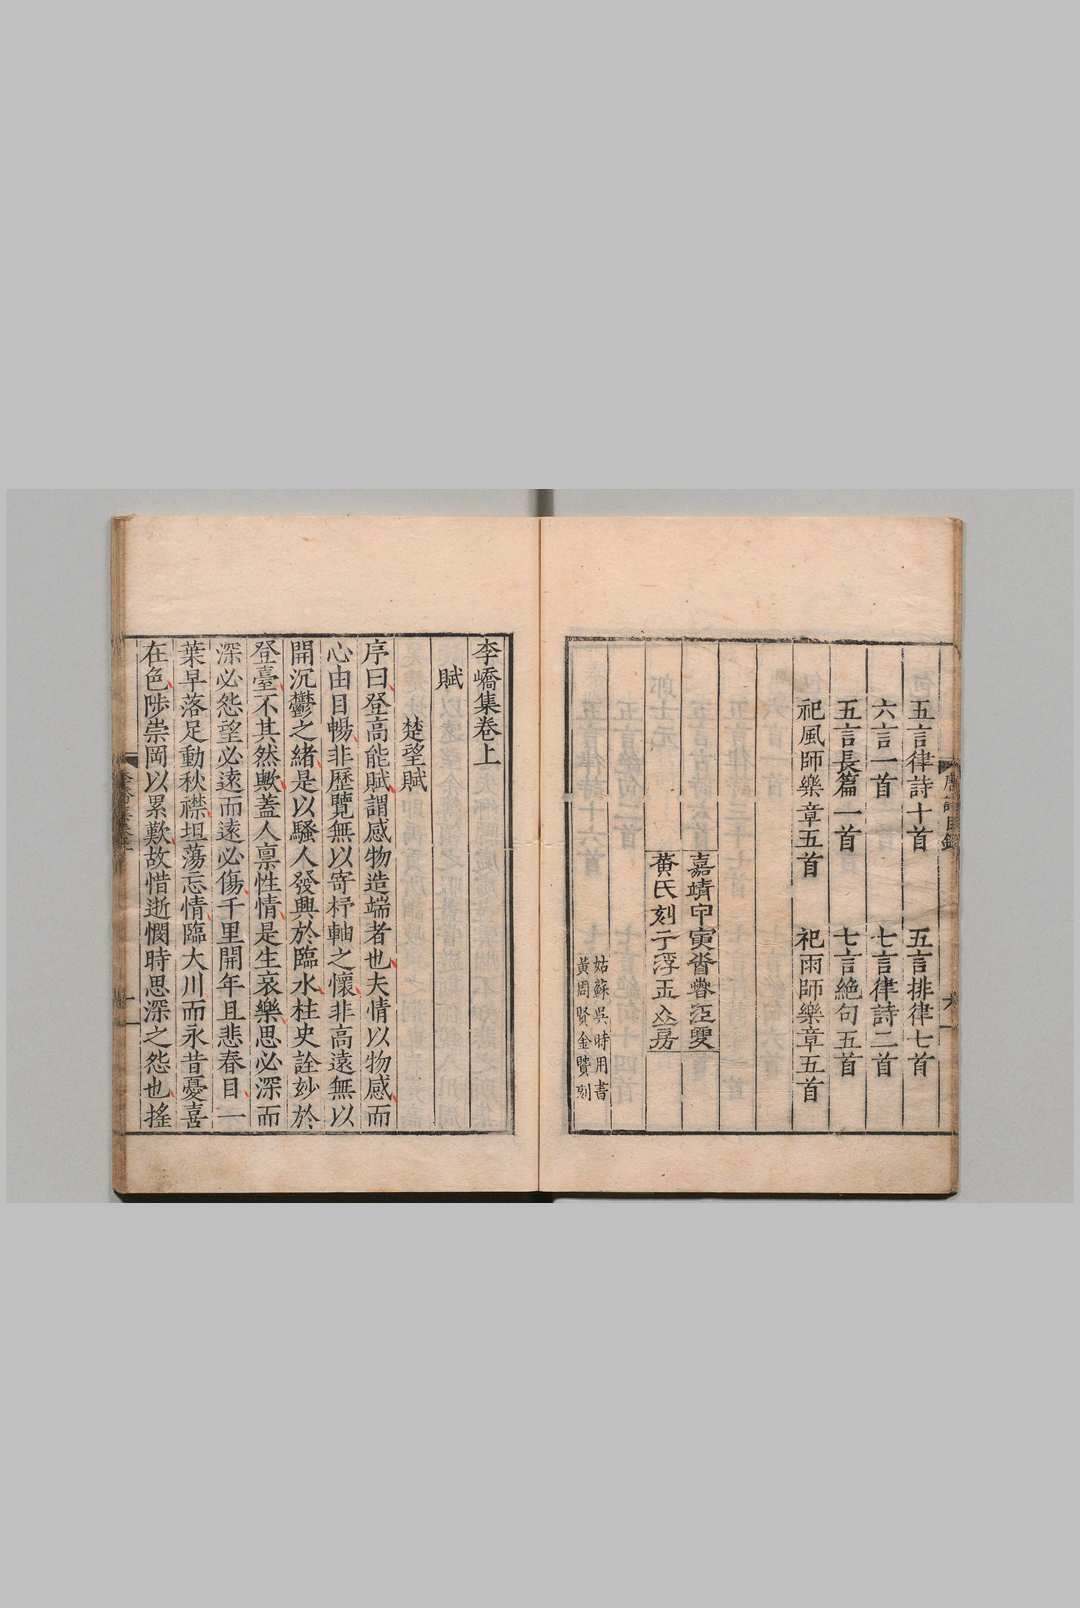 五言律詩十首 五言排律七首
六言一首 七言律詩二首
五言長篇一首 七言絶句五首
祀風師樂章五首 祀雨師樂章五首
嘉靖甲寅
黃氏刻于浮玉山房
姑蘇吳時用書
黃周賢金贒刻
李嶠集卷上
賦
楚望賦
序曰登高能賦謂感物造端者也夫情以物感而
心由目暢非歷覽無以寄杼軸之懷非高遠無以
開沉鬱之緒是以騷人發興於臨水柱史詮妙於
登臺不其然歟蓋人稟性情是生哀樂思必深而
深必怨望必遠而遠必傷千里開年且悲春目一
葉早落足動秋襟坦蕩忘情臨大川而永昔憂喜
在色陟崇岡以累歎故惜逝憫時思深之怨也搖